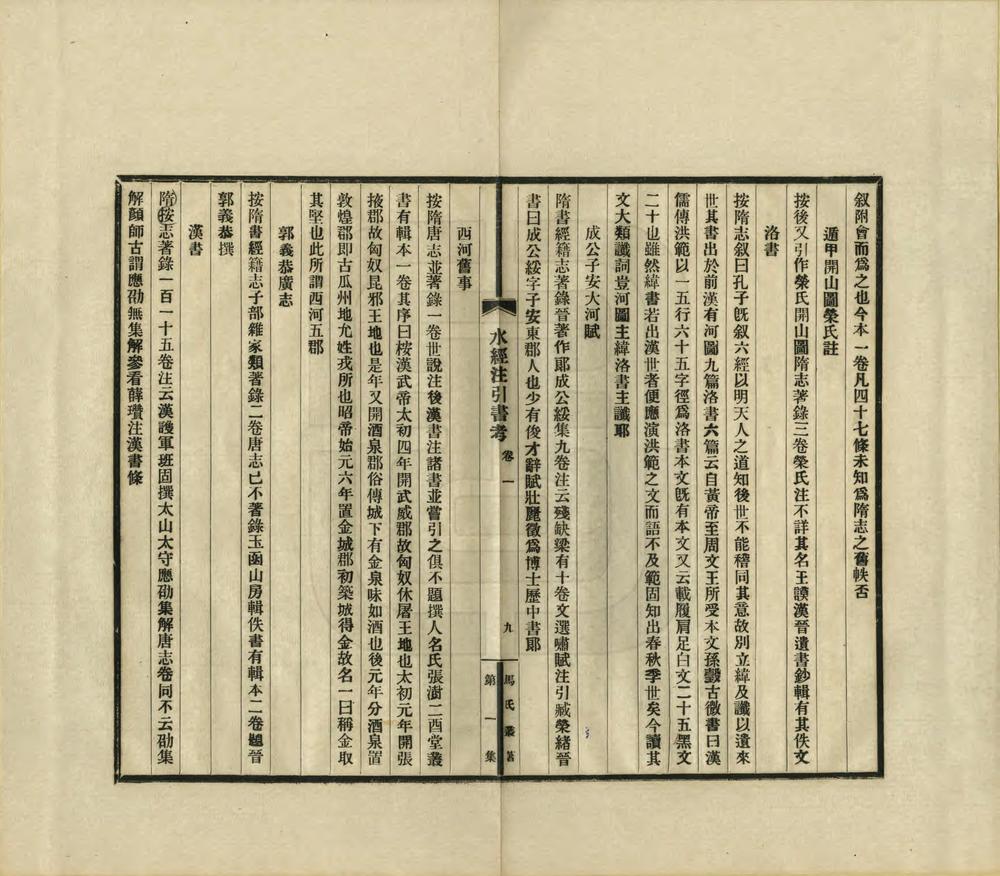 叙附會而爲之也今本一卷凡四十七條未知爲隋志之舊帙否
遁甲開山圖榮氏註
按後又引作榮氏開山圖隋志著錄三卷榮氏注不詳其名王謨漢晉遺書鈔輯有其佚文
洛書
按隋志叙曰孔子旣叙六經以明天人之道知後世不能稽同其意故別立緯及讖以遺來
世其書出於前漢有河圖九篇洛書六篇云自黃帝至周文王所受本文孫瑴古微書曰漢
儒傳洪範以一五行六十五字徑爲洛書本文旣有本文又云載履肩足白文二十五黑文
二十也雖然緯書若出漢世者便應演洪範之文而語不及範固知出春秋季世矣今讀其
文大類讖詞豈河圖主緯洛書主讖耶
成公子安大河賦
隋書經籍志著錄晉著作郞成公綏集九卷注云殘缺梁有十卷文選嘯賦注引臧榮緒晉
書曰成公綏字子安東郡人也少有俊才辭賦壯麗徵爲博士歷中書郞
水經注引書考
卷一
九
馬氏叢著
第一集
西河舊事
按隋唐志並著錄一卷世說注後漢書注諸書並嘗引之俱不題撰人名氏張澍二酉堂叢
書有輯本一卷其序曰桉漢武帝太初四年開武威郡故匈奴休屠王地也太初元年開張
掖郡故匈奴昆邪王地也是年又開酒泉郡俗傳城下有金泉味如酒也後元年分酒泉置
敦煌郡即古瓜州地允姓戎所也昭帝始元六年置金城郡初築城得金故名一曰稱金取
其堅也此所謂西河五郡
郭義恭廣志
按隋書經籍志子部雜家類著錄二卷唐志已不著錄玉函山房輯佚書有輯本二卷題晉
郭義恭撰
漢書
隋按志著錄一百一十五卷注云漢護軍班固撰太山太守應劭集解唐志卷同不云劭集
解顏師古謂應劭無集解參看薛瓚注漢書條